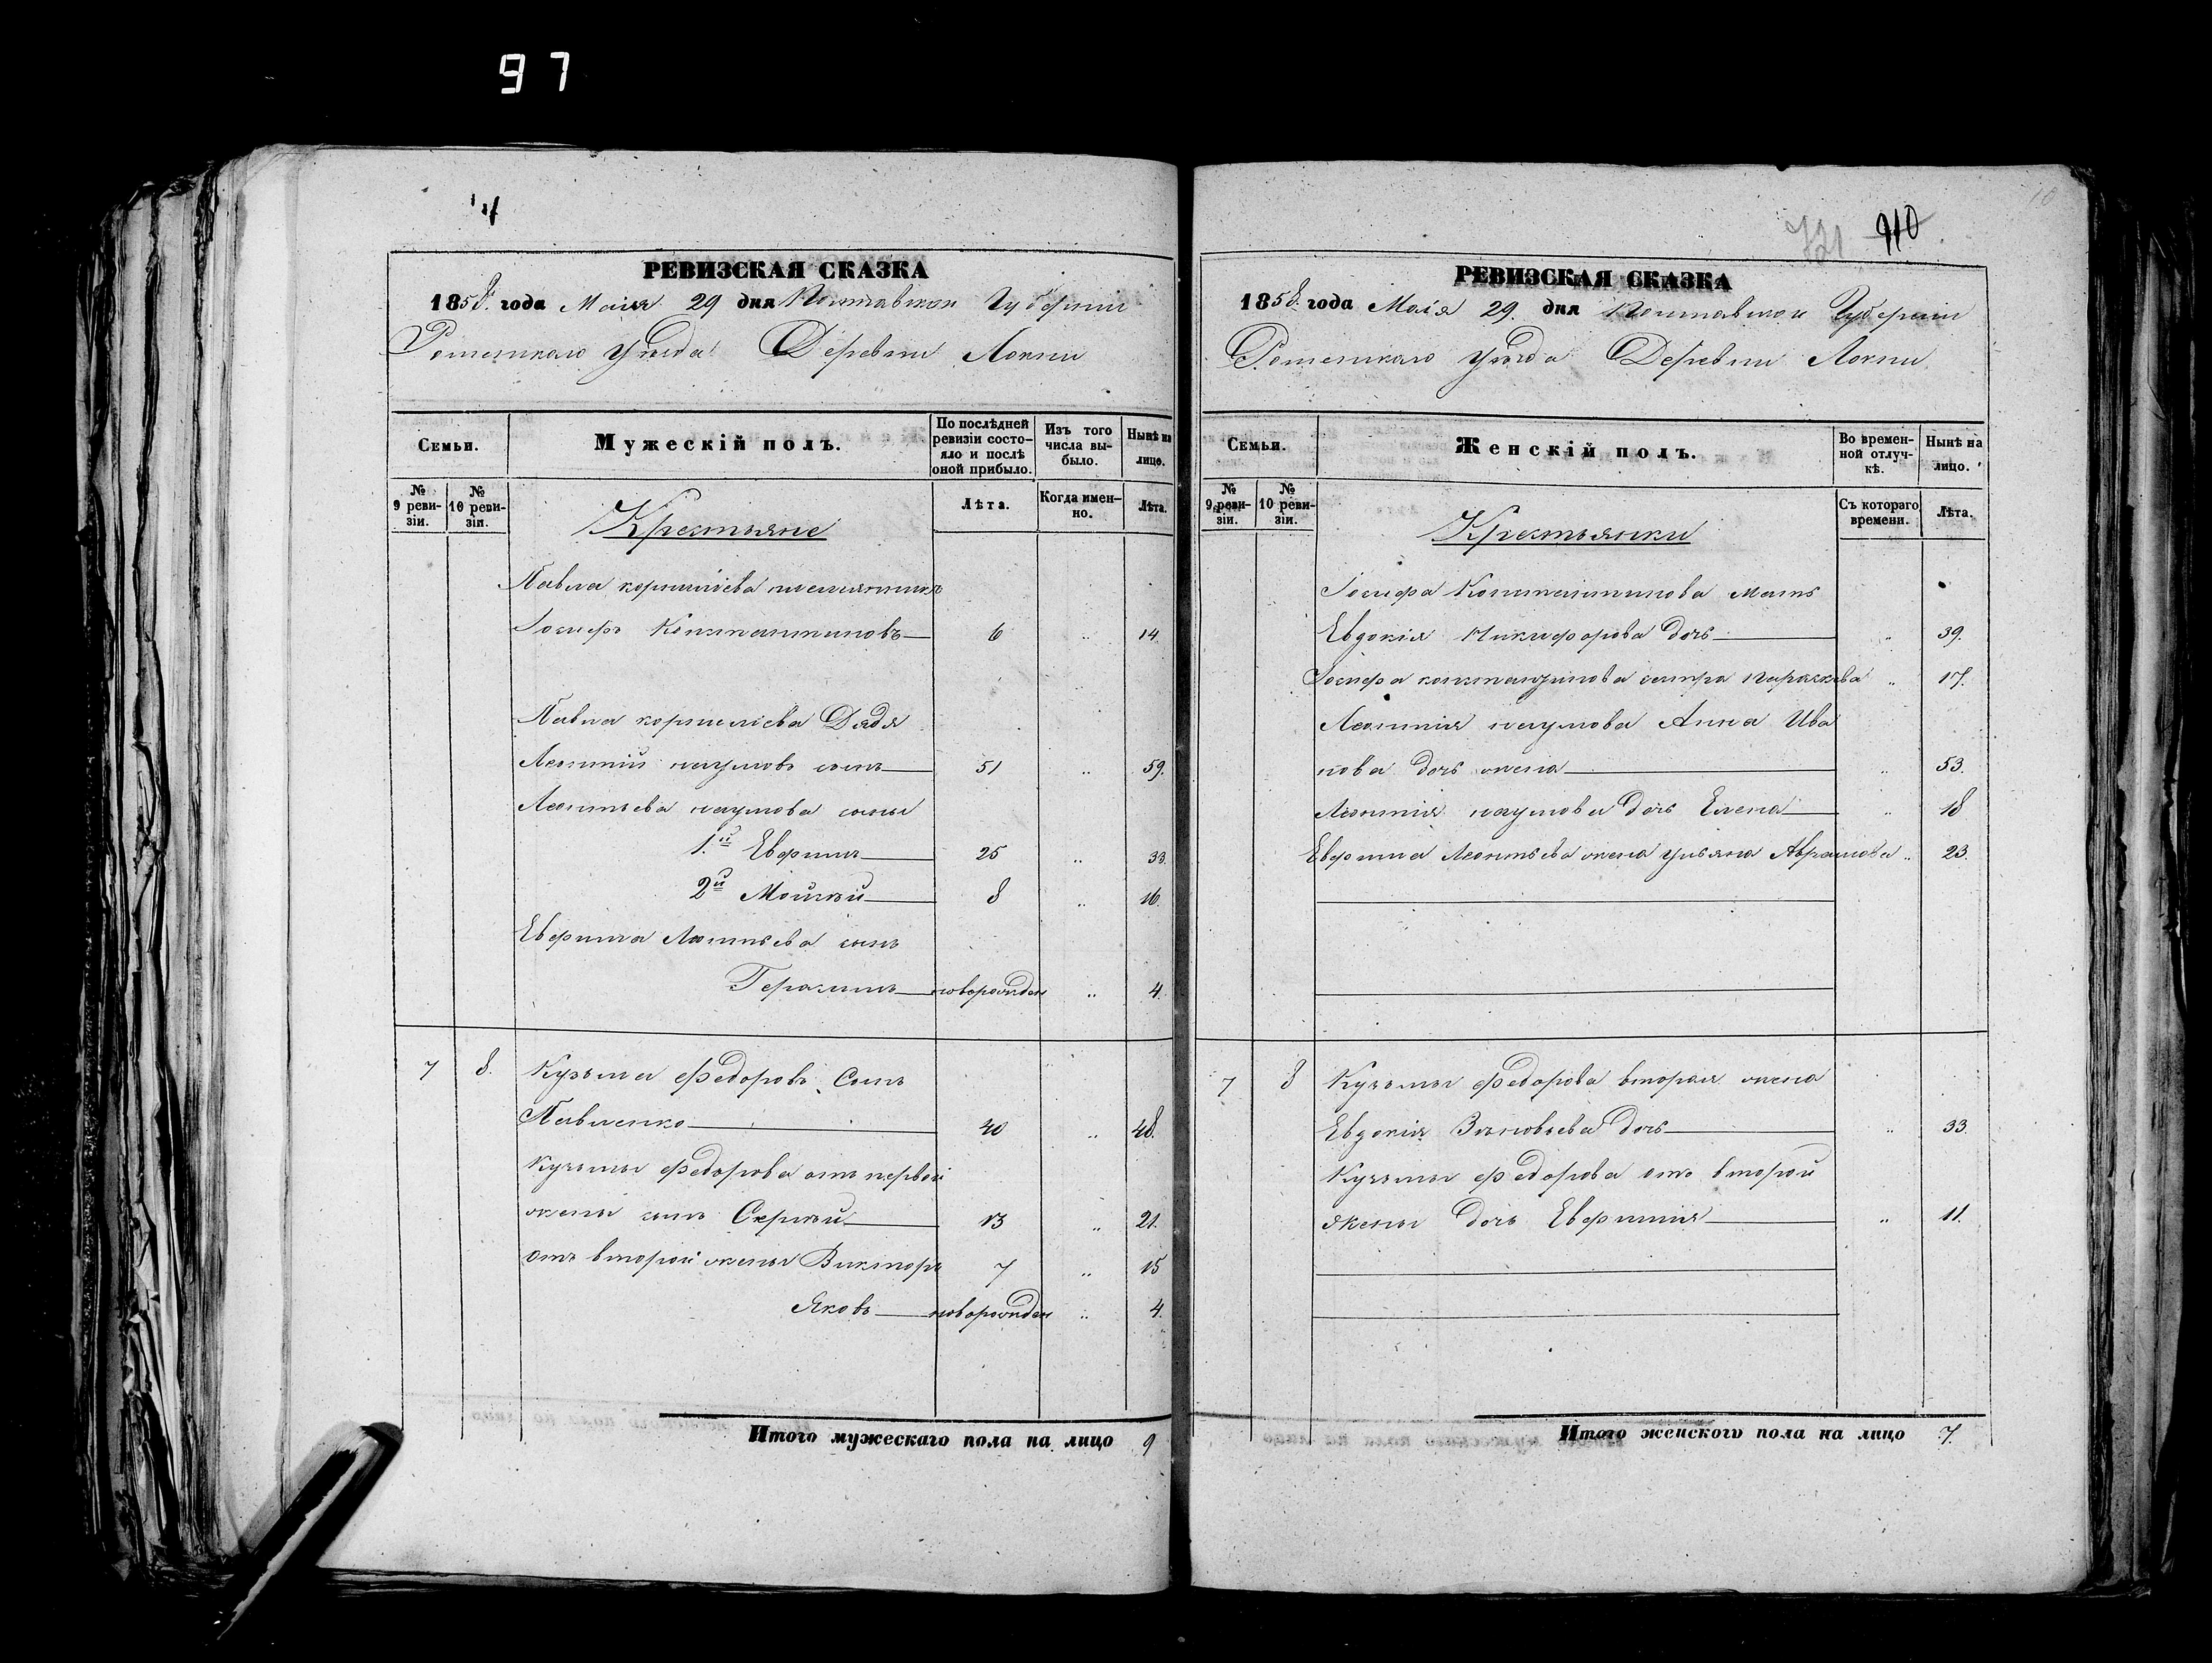 97
РЕВИЗСКАЯ СКАЗКА
1858. года Маія 29 дня Полтавской Губерніи
Роменскаго уѣзда Деревни Локни
Семьи. Мужескій полъ. По послѣдней ревизіи состояло и послѣ оной прибыло. Изъ того числа выбыло. Нынѣ на лицо.
№ 9 ревизіи. № 10 ревизіи. Крестьяне Лѣта. Когда именно. Лѣта.
Павла корнилієва племянникъ
Іосифъ Константиновъ 6 „ 14.
Павла корнилієва Дядя
Леонтій наумовъ сынъ 51 „ 59.
Леонтьева наумова сыны
1.й Ефримъ 25 „ 33.
2й Моисѣй 8 „ 16.
Ефрима Леонтьева сынъ
Герасимъ новорожден „ 4.
7 8. Кузьма Федоровъ Сынъ
Павленко 40 „ 48.
Кузьмы Федорова отъ первой
жены сынъ Сергѣй 13 „ 21.
отъ второй жены Викторъ 7 „ 15
Яковъ новорожден „ 4.
Итого мужескаго пола на лицо 9
721 910
10
РЕВИЗСКАЯ СКАЗКА
1858. года Маія 29. дня Полтавской Губерніи
Роменскаго уѣзда Деревни Локни
Семьи. Женскій полъ. Во временной отлучкѣ. Нынѣ на лицо.
№ 9 ревизіи. № 10 ревизіи. Крестьянки Съ котораго времени. Лѣта.
Іосифа Константинова мать
Евдокія Никифорова дочь „ 39.
Іосифа константинова сестра Параскева „ 17.
Леонтія наумова Анна Ива
нова дочь жена „ 53.
Леонтія наумова дочь Елена „ 18
Ефрима Леонтьева жена Ульяна Абрамова „ 23.
7 8 Кузьмы Федорова вторая жена
Евдокія Зѣновьева дочь „ 33.
Кузьмы Федорова отъ второй
жены дочь Ефимія „ 11.
Итого женскаго пола на лицо 7.